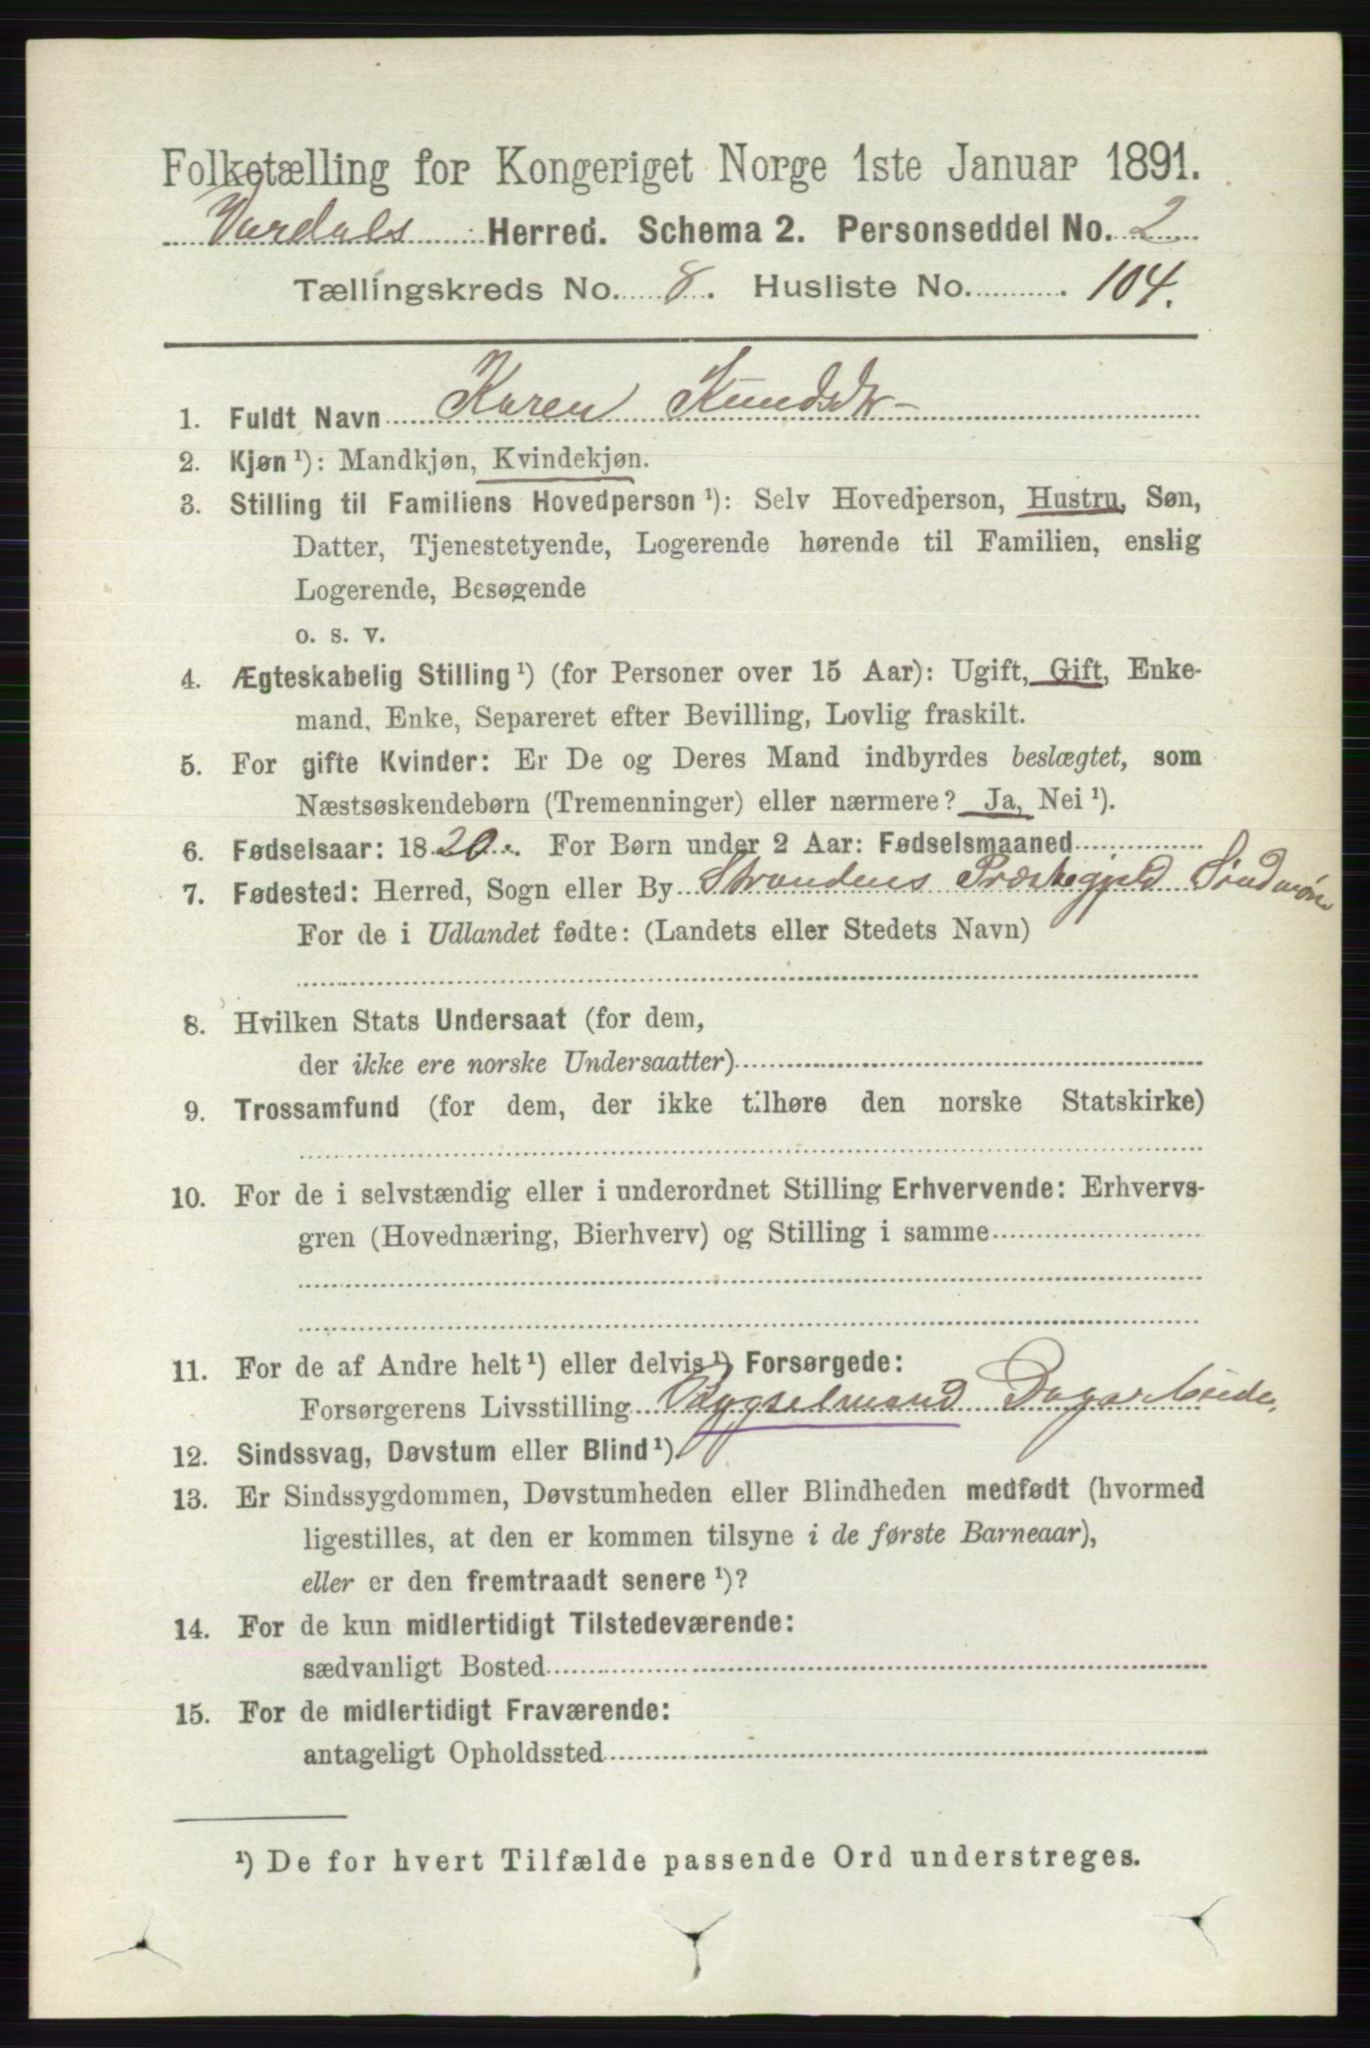 Folketælling for Kongeriget Norge 1ste Januar 1891.
Vardals Herred. Schema 2. Personseddel No. 2
Tællingskreds No. 8. Husliste No. 104.
1. Fuldt Navn Karen Knudsdtr
2. Kjøn ¹): Mandkjøn, Kvindekjøn.
3. Stilling til Familiens Hovedperson ¹): Selv Hovedperson, Hustru, Søn,
Datter, Tjenestetyende, Logerende hørende til Familien, enslig
Logerende, Besøgende
o. s. v.
4. Ægteskabelig Stilling ¹) (for Personer over 15 Aar): Ugift, Gift, Enke-
mand, Enke, Separeret efter Bevilling, Lovlig fraskilt.
5. For gifte Kvinder: Er De og Deres Mand indbyrdes beslægtet, som
Næstsøskendebørn (Tremenninger) eller nærmere? Ja, Nei ¹).
6. Fødselsaar: 1820. For Børn under 2 Aar: Fødselsmaaned
7. Fødested: Herred, Sogn eller By Strandens Præstegjeld Söndmöre
For de i Udlandet fødte: (Landets eller Stedets Navn)
8. Hvilken Stats Undersaat (for dem,
der ikke ere norske Undersaatter)
9. Trossamfund (for dem, der ikke tilhøre den norske Statskirke)
10. For de i selvstændig eller i underordnet Stilling Erhvervende: Erhvervs-
gren (Hovednæring, Bierhverv) og Stilling i samme
11. For de af Andre helt ¹) eller delvis ¹) Forsørgede:
Forsørgerens Livsstilling Bygselmand Dagarbeider
12. Sindssvag, Døvstum eller Blind ¹)
13. Er Sindssygdommen, Døvstumheden eller Blindheden medfødt (hvormed
ligestilles, at den er kommen tilsyne i de første Barneaar),
eller er den fremtraadt senere ¹)?
14. For de kun midlertidigt Tilstedeværende:
sædvanligt Bosted
15. For de midlertidigt Fraværende:
antageligt Opholdssted
¹) De for hvert Tilfælde passende Ord understreges.